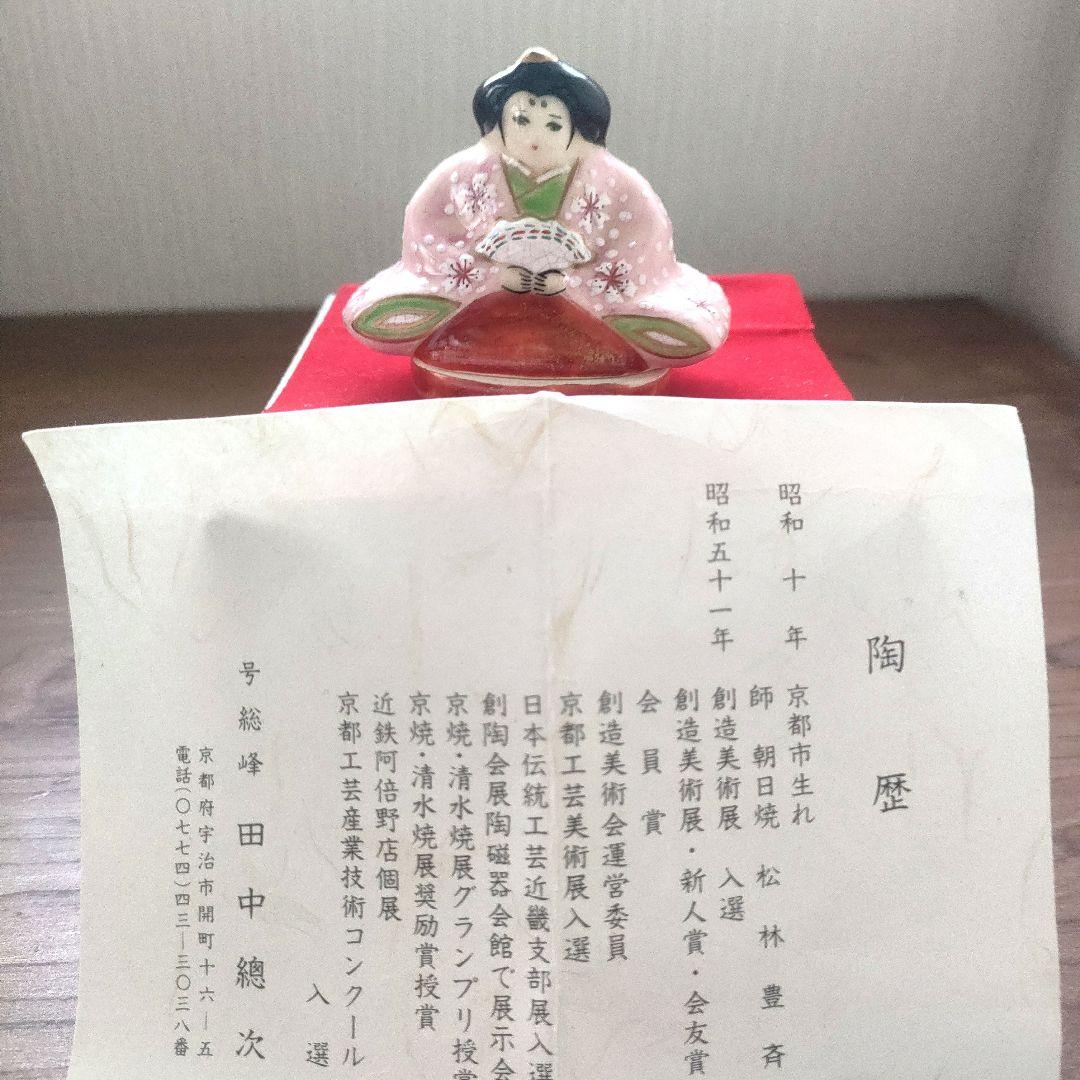 陶歴
昭和十年 京都市生れ
師 朝日焼 松林豊斉
昭和五十一年 創造美術展 入選
創造美術展・新人賞・会友賞
会員賞
創造美術会運営委員
京都工芸美術展入選
日本伝統工芸近畿支部展入選
創陶会展陶磁器会館で展示会
京焼・清水焼展グランプリ授賞
京焼・清水焼展奨励賞授賞
近鉄阿倍野店個展
京都工芸産業技術コンクール
入選
号総峰 田中總次
京都府宇治市開町十六―五
電話(〇七七四)四三―三〇三八番